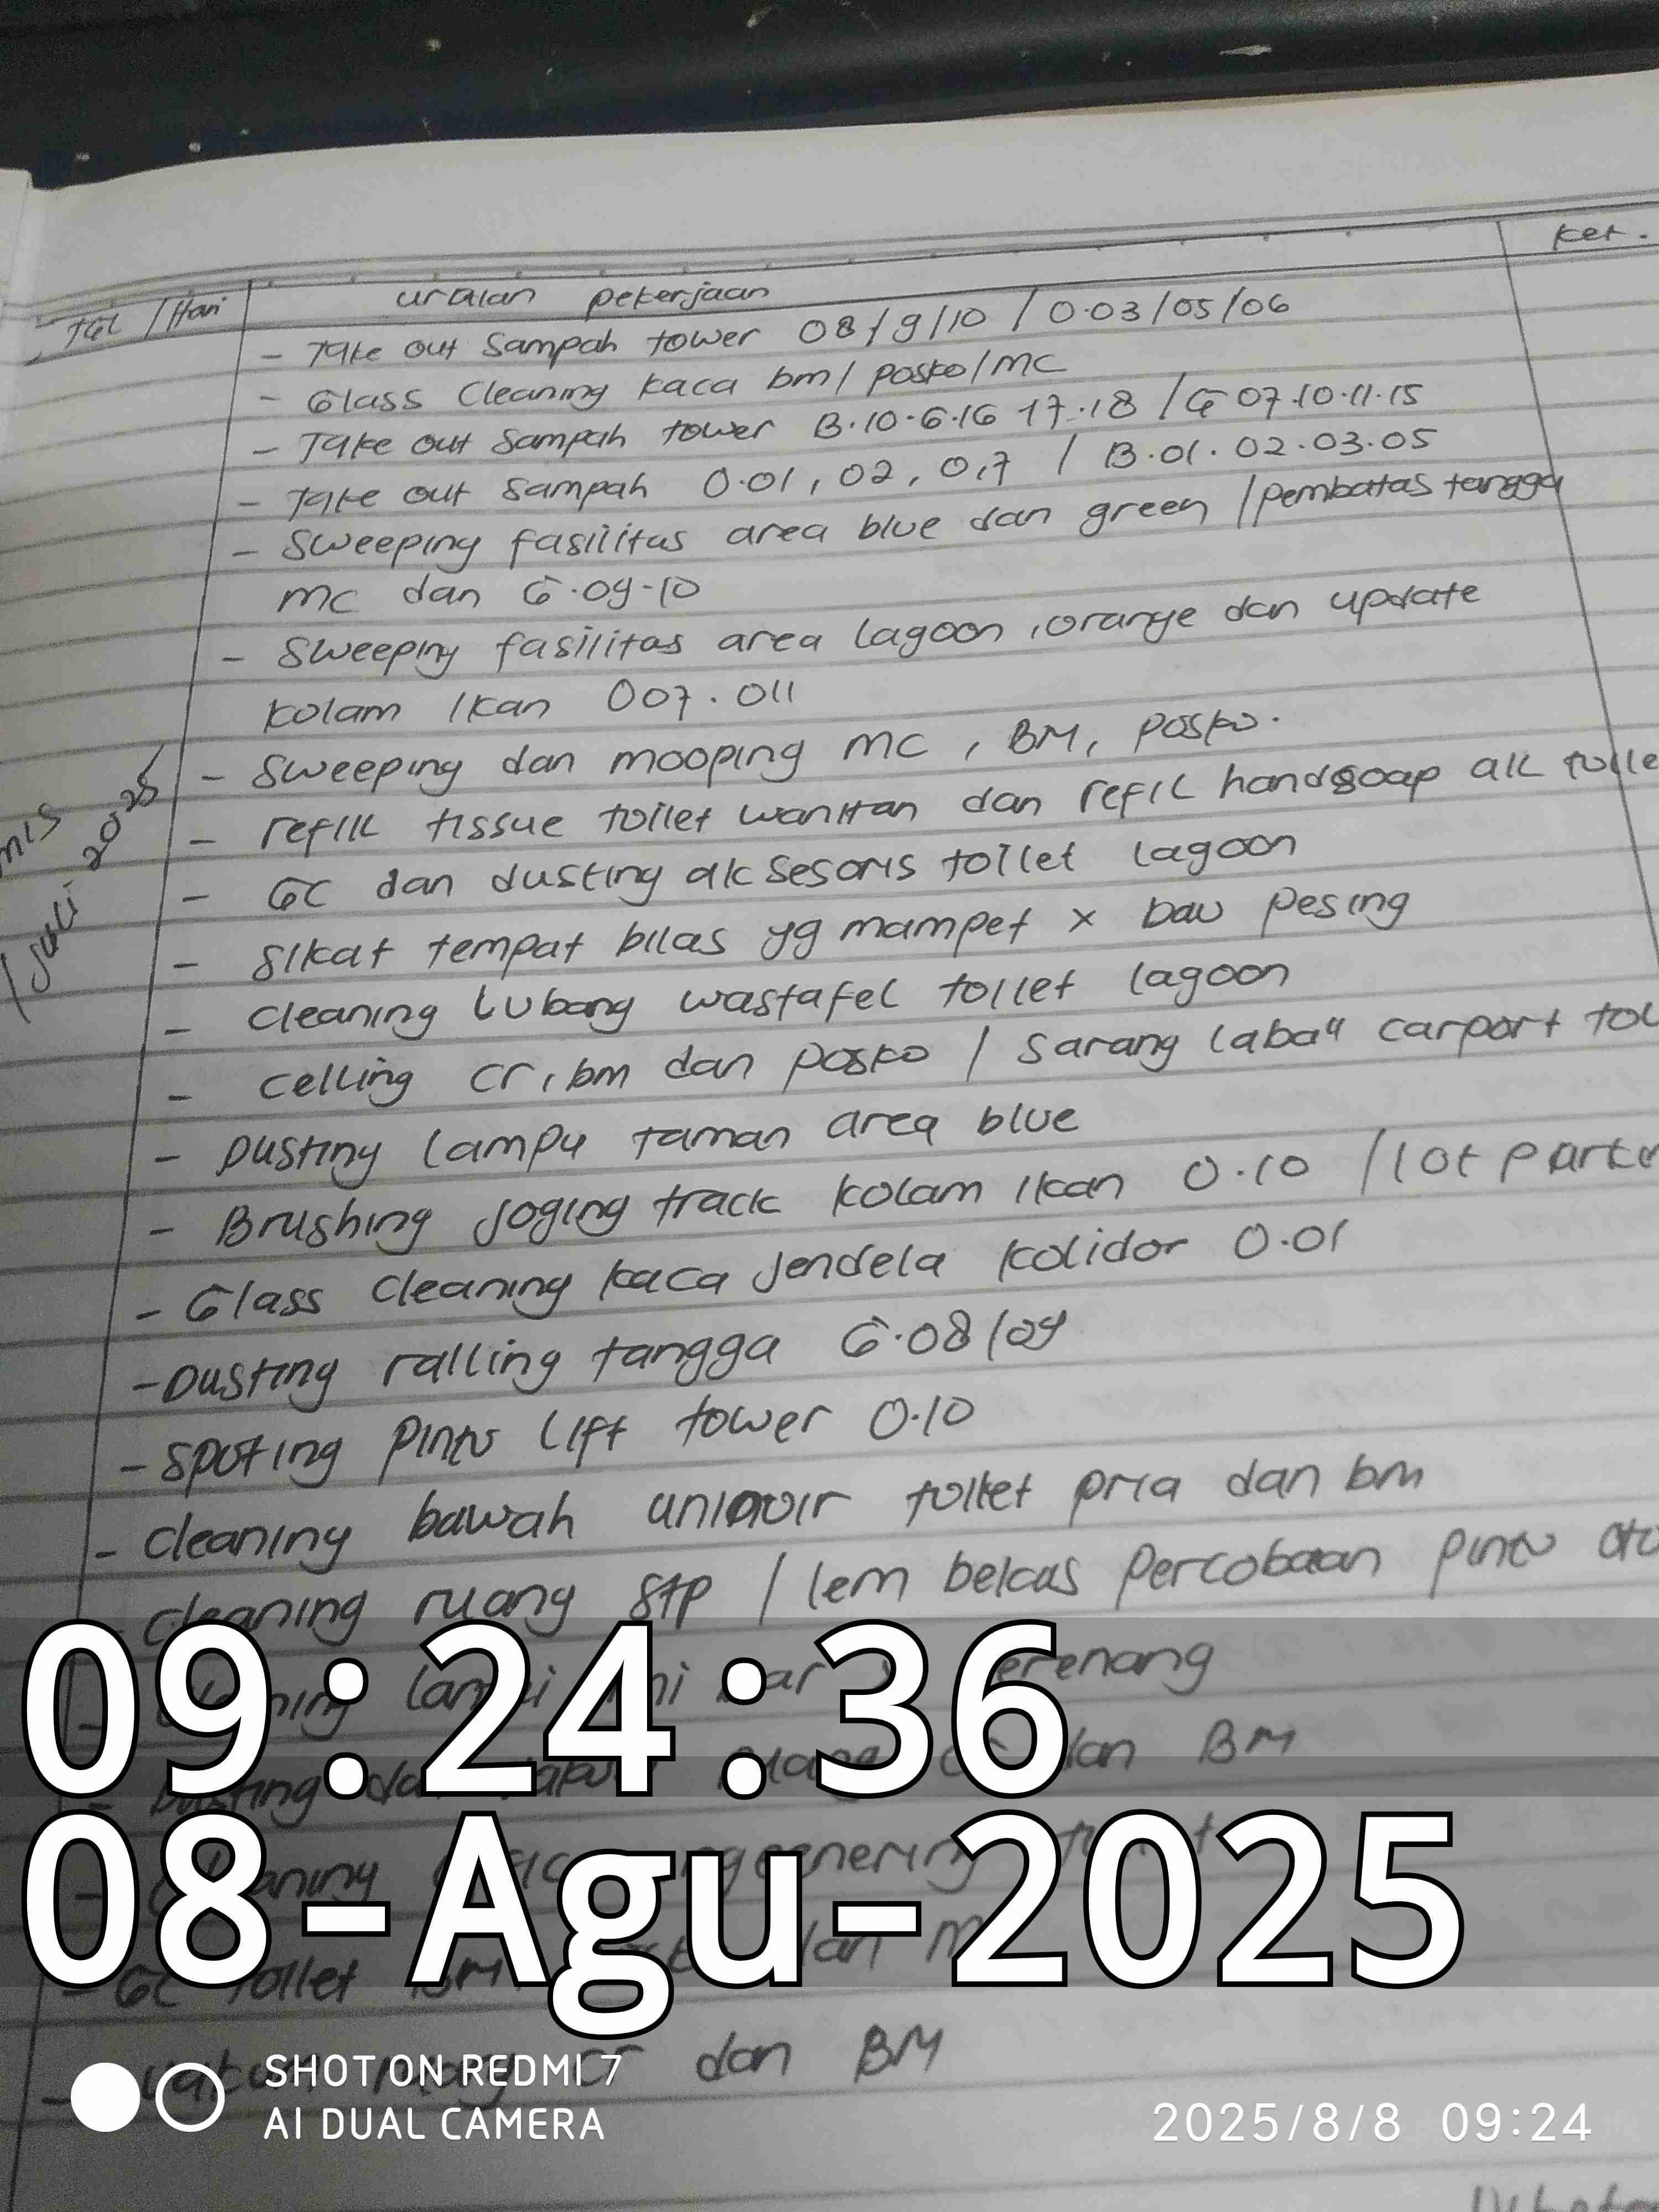 TGL / Hari uraian pekerjaan Ket.
- Take out Sampah tower 08/9/10 / 0.03/05/06
- Glass Cleaning kaca bm/ posko/MC
- Take out Sampah tower B.10.6.16 17.18 / G 07.10.11.15
- Take out Sampah 0.01, 02, 0,7 / B.01. 02.03.05
- Sweeping fasilitas area blue dan green / pembatas tangga
MC dan G.09-10
- Sweeping fasilitas area lagoon, orange dan update
kolam Ikan 007.011
- Sweeping dan mooping MC, BM, Posko.
- refill tissue toilet wanitan dan refil handsoap all
- GC dan dusting aksesoris toilet lagoon
- Sikat tempat bilas yg mampet x bau Pesing
- cleaning Lubang wastafel toilet lagoon
- celling cr, bm dan posko / Sarang laba" carport
- Dusting lampu taman area blue
- Brushing joging track kolam ikan 0.10 / lot
- Glass cleaning kaca jendela kolidor 0.01
- Dusting ralling tangga G.08/09
- Spoting Pintu lift tower 0.10
- cleaning bawah toilet pria dan bm
- cleaning ruang Stp / lem bekas Percobaan pintu
Juli 2025
dan BM
- GC toilet BM
dan BM
09:24:36
08-Agu-2025
SHOT ON REDMI 7
AI DUAL CAMERA
2025/8/8 09:24